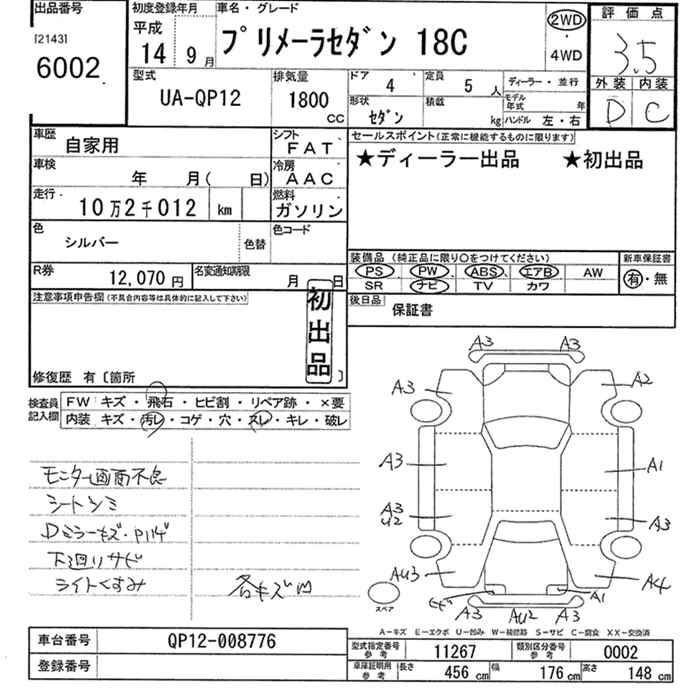 出品番号
[2143]
6002
初度登録年月
平成
14 9月
車名・グレード
プリメーラセダン 18C
2WD
・
4WD
評価点
3.5
外装 内装
D C
型式
UA-QP12
排気量
1800
CC
ドア 4
定員 5 人
形状 セダン
積載 kg
ディーラー・並行
モデル年式 年
ハンドル 左・右
車歴 自家用
シフト FAT
車検 年 月( 日)
冷房 AAC
走行 10万2千012 km
燃料 ガソリン
色 シルバー 色替
色コード
R券 12,070円
名変通知期限 月 日
セールスポイント(正常に機能するものに限ります)
★ディーラー出品 ★初出品
装備品 (純正品に限り○をつけてください)
PS PW ABS エアB AW
SR ナビ TV カワ
新車保証書
有・無
後日品 保証書
注意事項申告欄(不具合内容等は具体的に記入して下さい)
初出品
修復歴 有〔箇所 〕
検査員記入欄
FW キズ・飛石・ヒビ割・リペア跡・×要
内装 キズ・汚レ・コゲ・穴・スレ・キレ・破レ
モニター画面不良
シートシミ
Dミラーキズ・
下廻りサビ
ライトくすみ
各キズ凹
A3 A3
A3 A2
A3 A1
A3
U2
A3
AU3 A4
A1
A3 AU2 A3
スペア
A―キズ E―エクボ U―凹み W―補修跡 S―サビ C―腐食 XX―交換済
車台番号 QP12-008776
登録番号
型式指定番号 参考 11267
類別区分番号 参考 0002
車庫証明用 参考 長さ 456 cm 幅 176 cm 高さ 148 cm